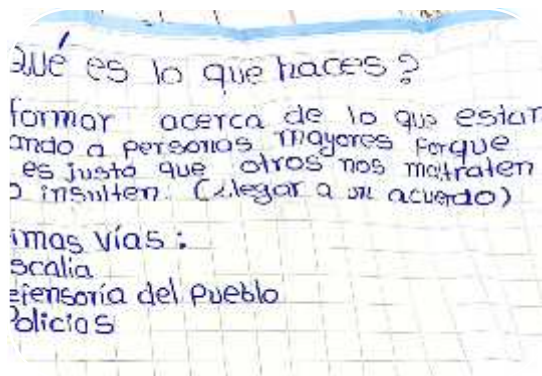 Qué es lo que haces?
formar acerca de lo que estar
ando a personas mayores porque
es justo que otros nos maltraten
o insulten. (Llegar a un acuerdo)
imas vías:
scalia
efensoría del Pueblo
Policias